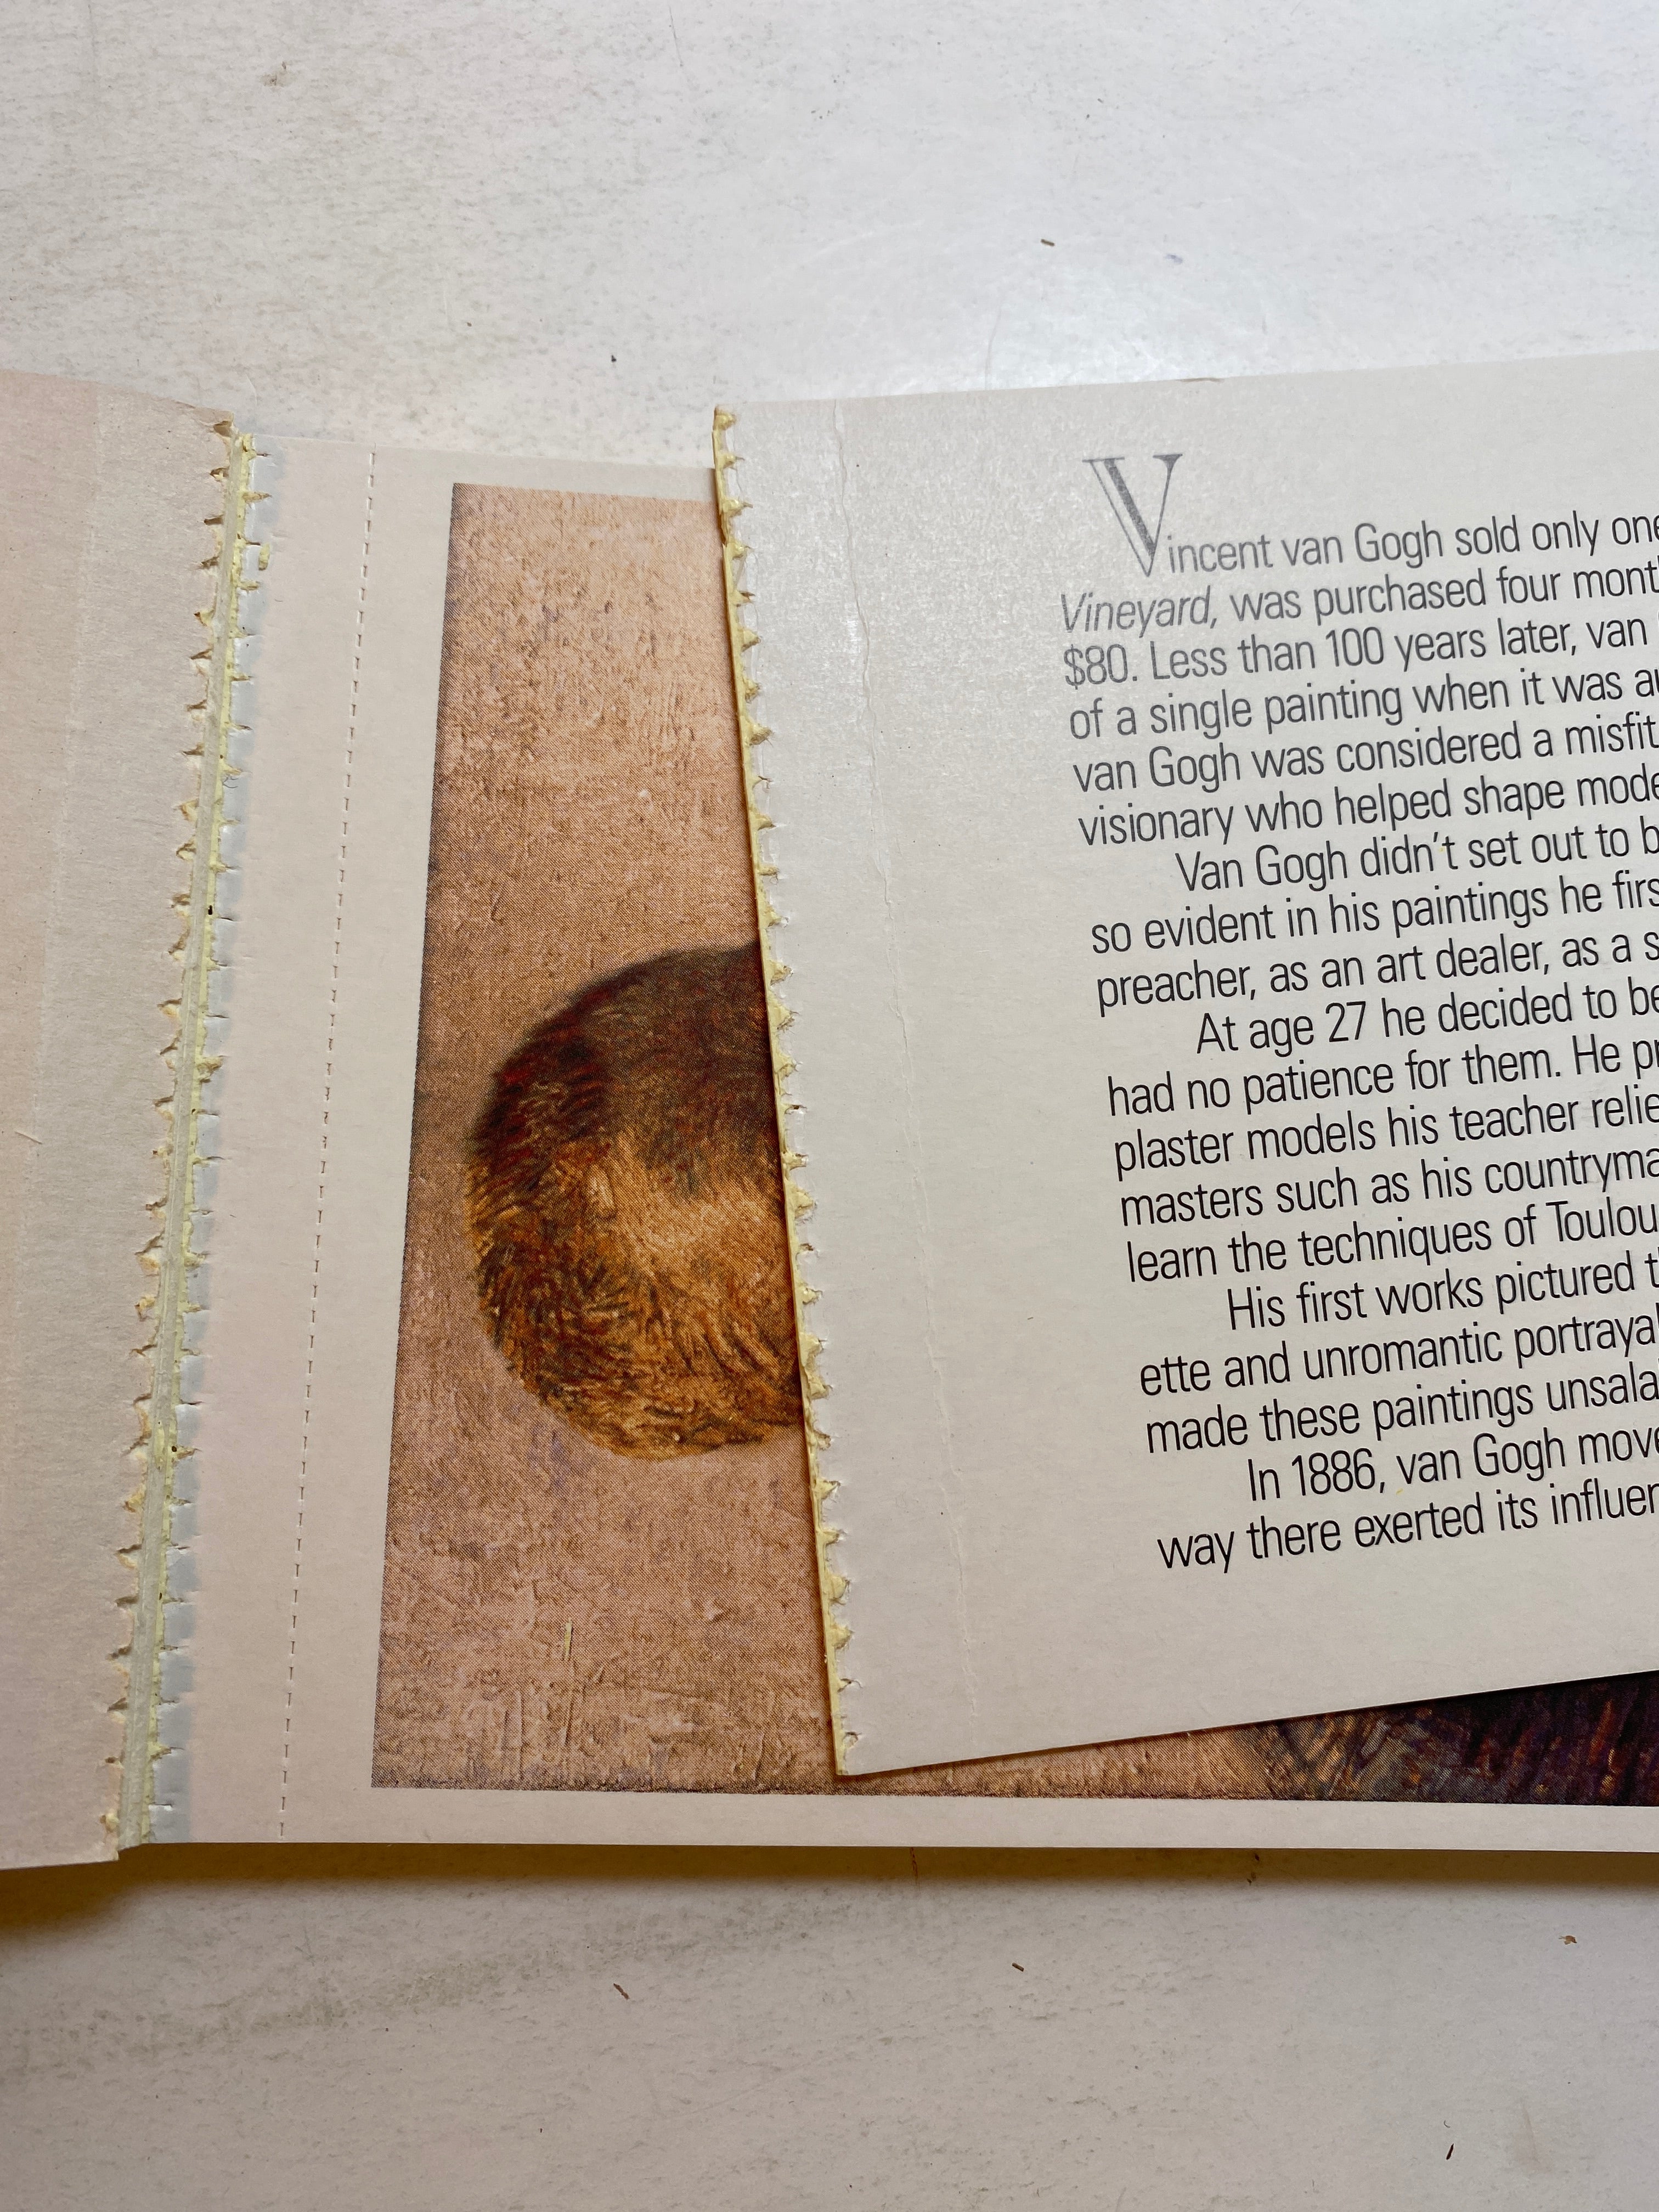 Vincent van Gogh sold only one
Vineyard, was purchased four mont
$80. Less than 100 years later, van
of a single painting when it was au
van Gogh was considered a misfit
visionary who helped shape mode
Van Gogh didn't set out to b
so evident in his paintings he firs
preacher, as an art dealer, as a s
At age 27 he decided to be
had no patience for them. He pr
plaster models his teacher relie
masters such as his countryma
learn the techniques of Toulou
His first works pictured t
ette and unromantic portrayal
made these paintings unsala
In 1886, van Gogh move
way there exerted its influen